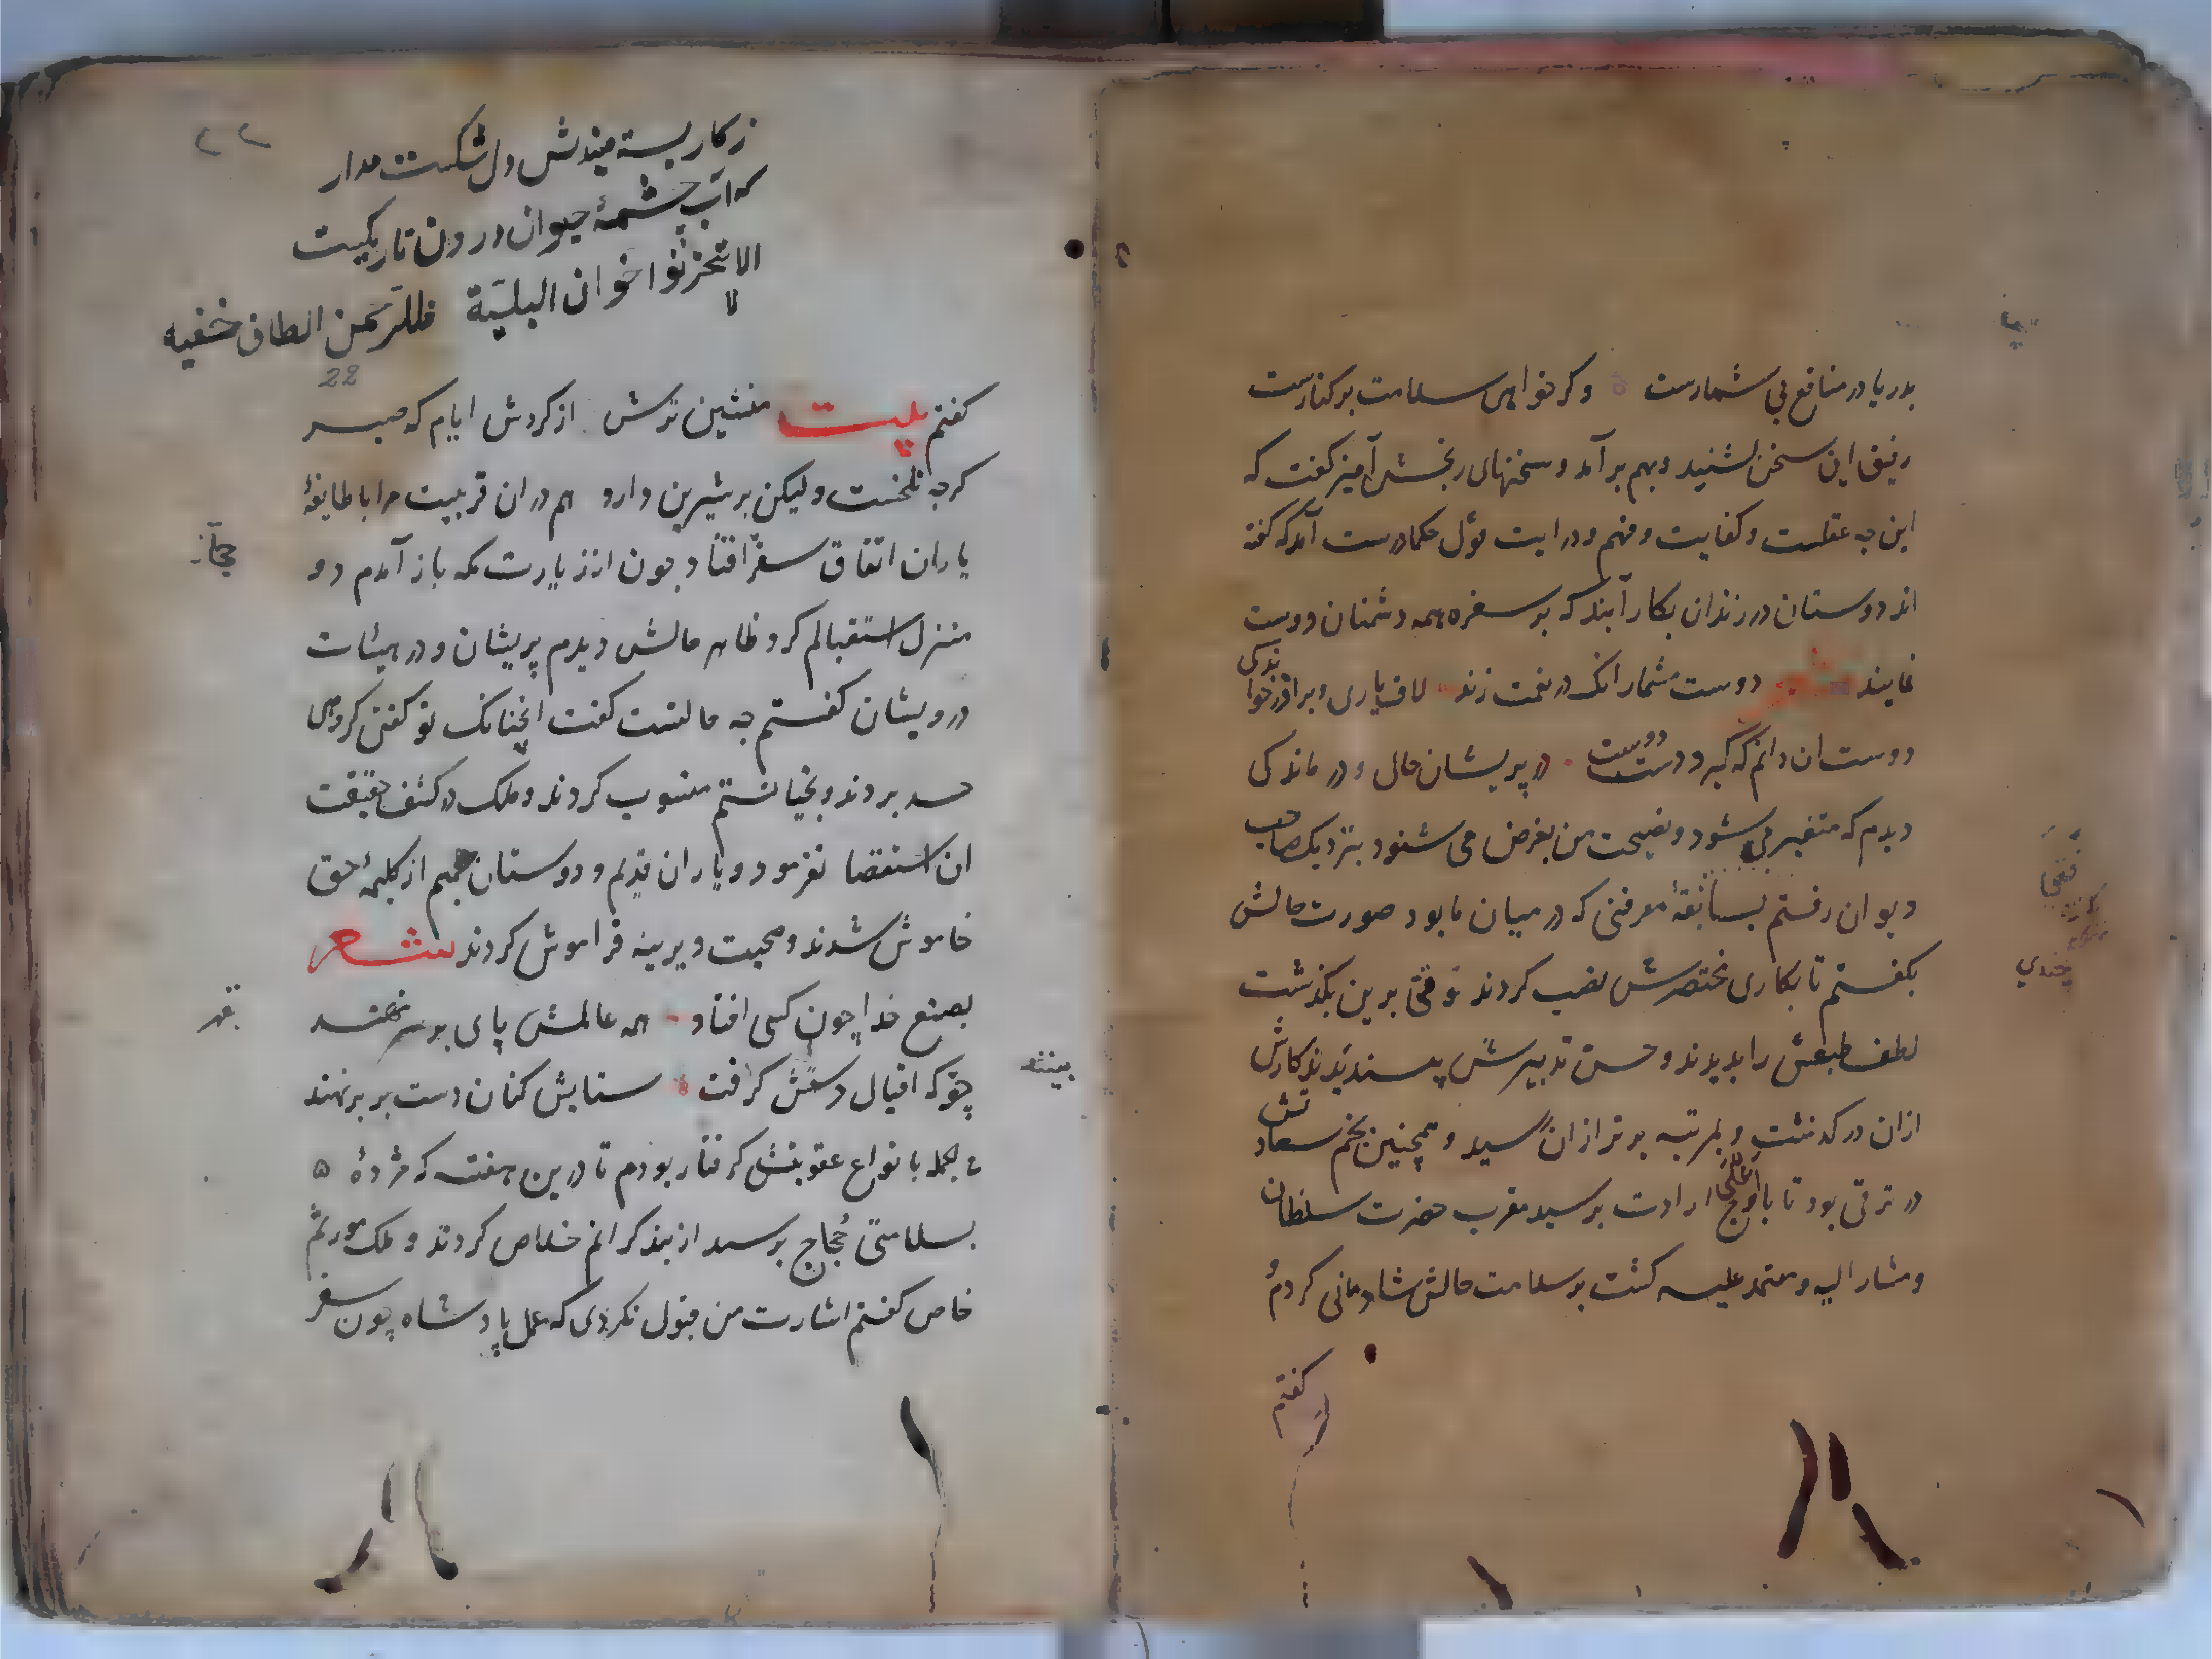 بدریا در منافع بی شمارست وکر خواهی سلامت بر کنارست
رفیق این سخن بشنید و بهم بر آمد و سخنهای رنجش آمیز کفت که
این چه عقلست و کفایت و فهم و درایت قول حکما درست آمد که کفته
اند دوستان در زندان بکار آیند که بر سفره همه دشمنان دوست
نمایند دوست مشمار انک در نعمت زند لاف یاری و برادر خواندکی
دوست ان دانم که کیرد دست دوست در پریشان حالی و درماندکی
دیدم که متغیر می شود و نصیحت من بغرض می شنود بنزدیک صاحب
دیوان رفتم بسابقهٔ معرفتی که در میان ما بود صورت حالش
بکفتم تا بکاری مختصرش نصب کردند وقتی برین بکذشت
لطف طبعش را بدیدند و حسن تدبیرش پسندیدند کارش
ازان در کدشت و بمرتبه برتر ازان رسید و همچنین نجم سعادتش
در ترقی بود تا باوج اعلی ارادت برسید مقرب حضرت سلطان
و مشار الیه و معتمد علیه کشت بر سلامت حالش شادمانی کردم و
کفتم
زکار بسته میندیش ودل شکسته مدار
که آب چشمهٔ حیوان درون تاریکیست
الا لا تحزنوا اخوان البلیّة فللرّحمن الطاف خفیه
22
کفتم بیت منشین ترش از کردش ایام که صبر
کرچه تلخست ولیکن بر شیرین دارد هم دران قربیت مرا با طایفهٔ
یاران اتفاق سفر افتاد چون از زیارت مکه باز آمدم دو
حجاز
منزل استقبالم کرد ظاهر حالش دیدم پریشان و در هیئات
درویشان کفتم چه حالتست کفت انچنانک تو کفتی کروهی
حسد بردند و بخیانتم منسوب کردند و ملک در کشف حقیقت
ان استقصا نفرمود و یاران قدیم و دوستان حمیم از کلمهٔ حق
خاموش شدند و صحبت دیرینه فراموش کردند شعر
بصنع خدا چون کسی افتاد همه عالمش پای بر سر نهند
چو که اقبال دستش کرفت ستایش کنان دست بر بر نهند
بینند
فی الجمله بانواع عقوبتش کرفتار بودم تا درین هفته که مژدهٔ
بسلامتی حُجاج برسید از بند کرانم خلاص کردند و ملک مورثم
خاص کفتم اشارت من قبول نکردی که عمل پادشاه چون سفر